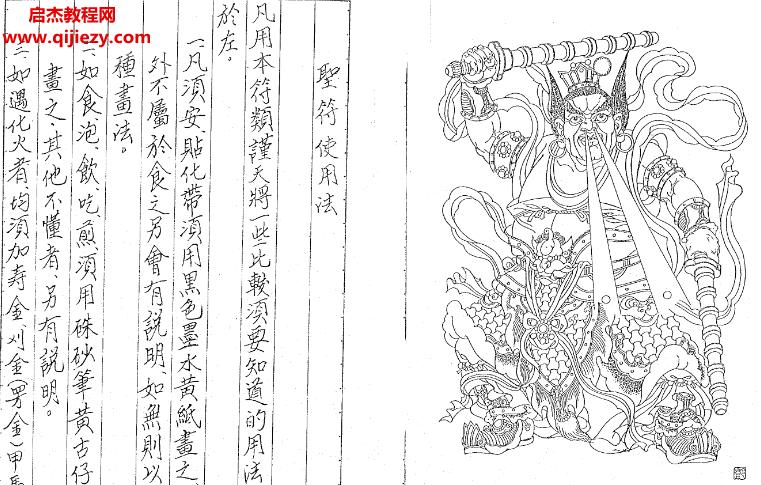 启杰教程网
www.qijiezy.com
聖符使用法
凡用本符類謹天將一些比較須要知道的用法
於左。
一、凡須安、貼化帶須用黑色墨水黃紙畫之
外不屬於食之另會有說明、如無則以
種畫法。
二、如食泡、飲、吃、煎須用硃砂筆黃古仔
畫之、其他不懂者、另有說明。
三、如遇化火者均須加寿金、刈金(男金)甲馬